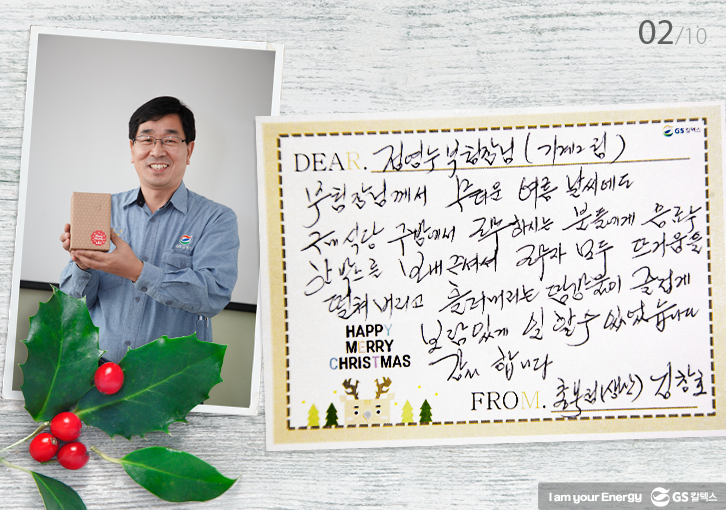 02/10
GS칼텍스
DEAR. 김영수 부팀장님 (기계2팀)
부팀장님께서 무더운 여름 날씨에도
구내식당 주방에서 근무하시는 분들에게 음료수
한 박스를 보내주셔서 근무자 모두 뜨거움을
떨쳐 버리고 흘러내리는 땀방울이 즐겁게
보람있게 일 할수 있었습니다
감사 합니다
HAPPY
MERRY
CHRISTMAS
FROM. (생산) 김창호
I am your Energy GS칼텍스